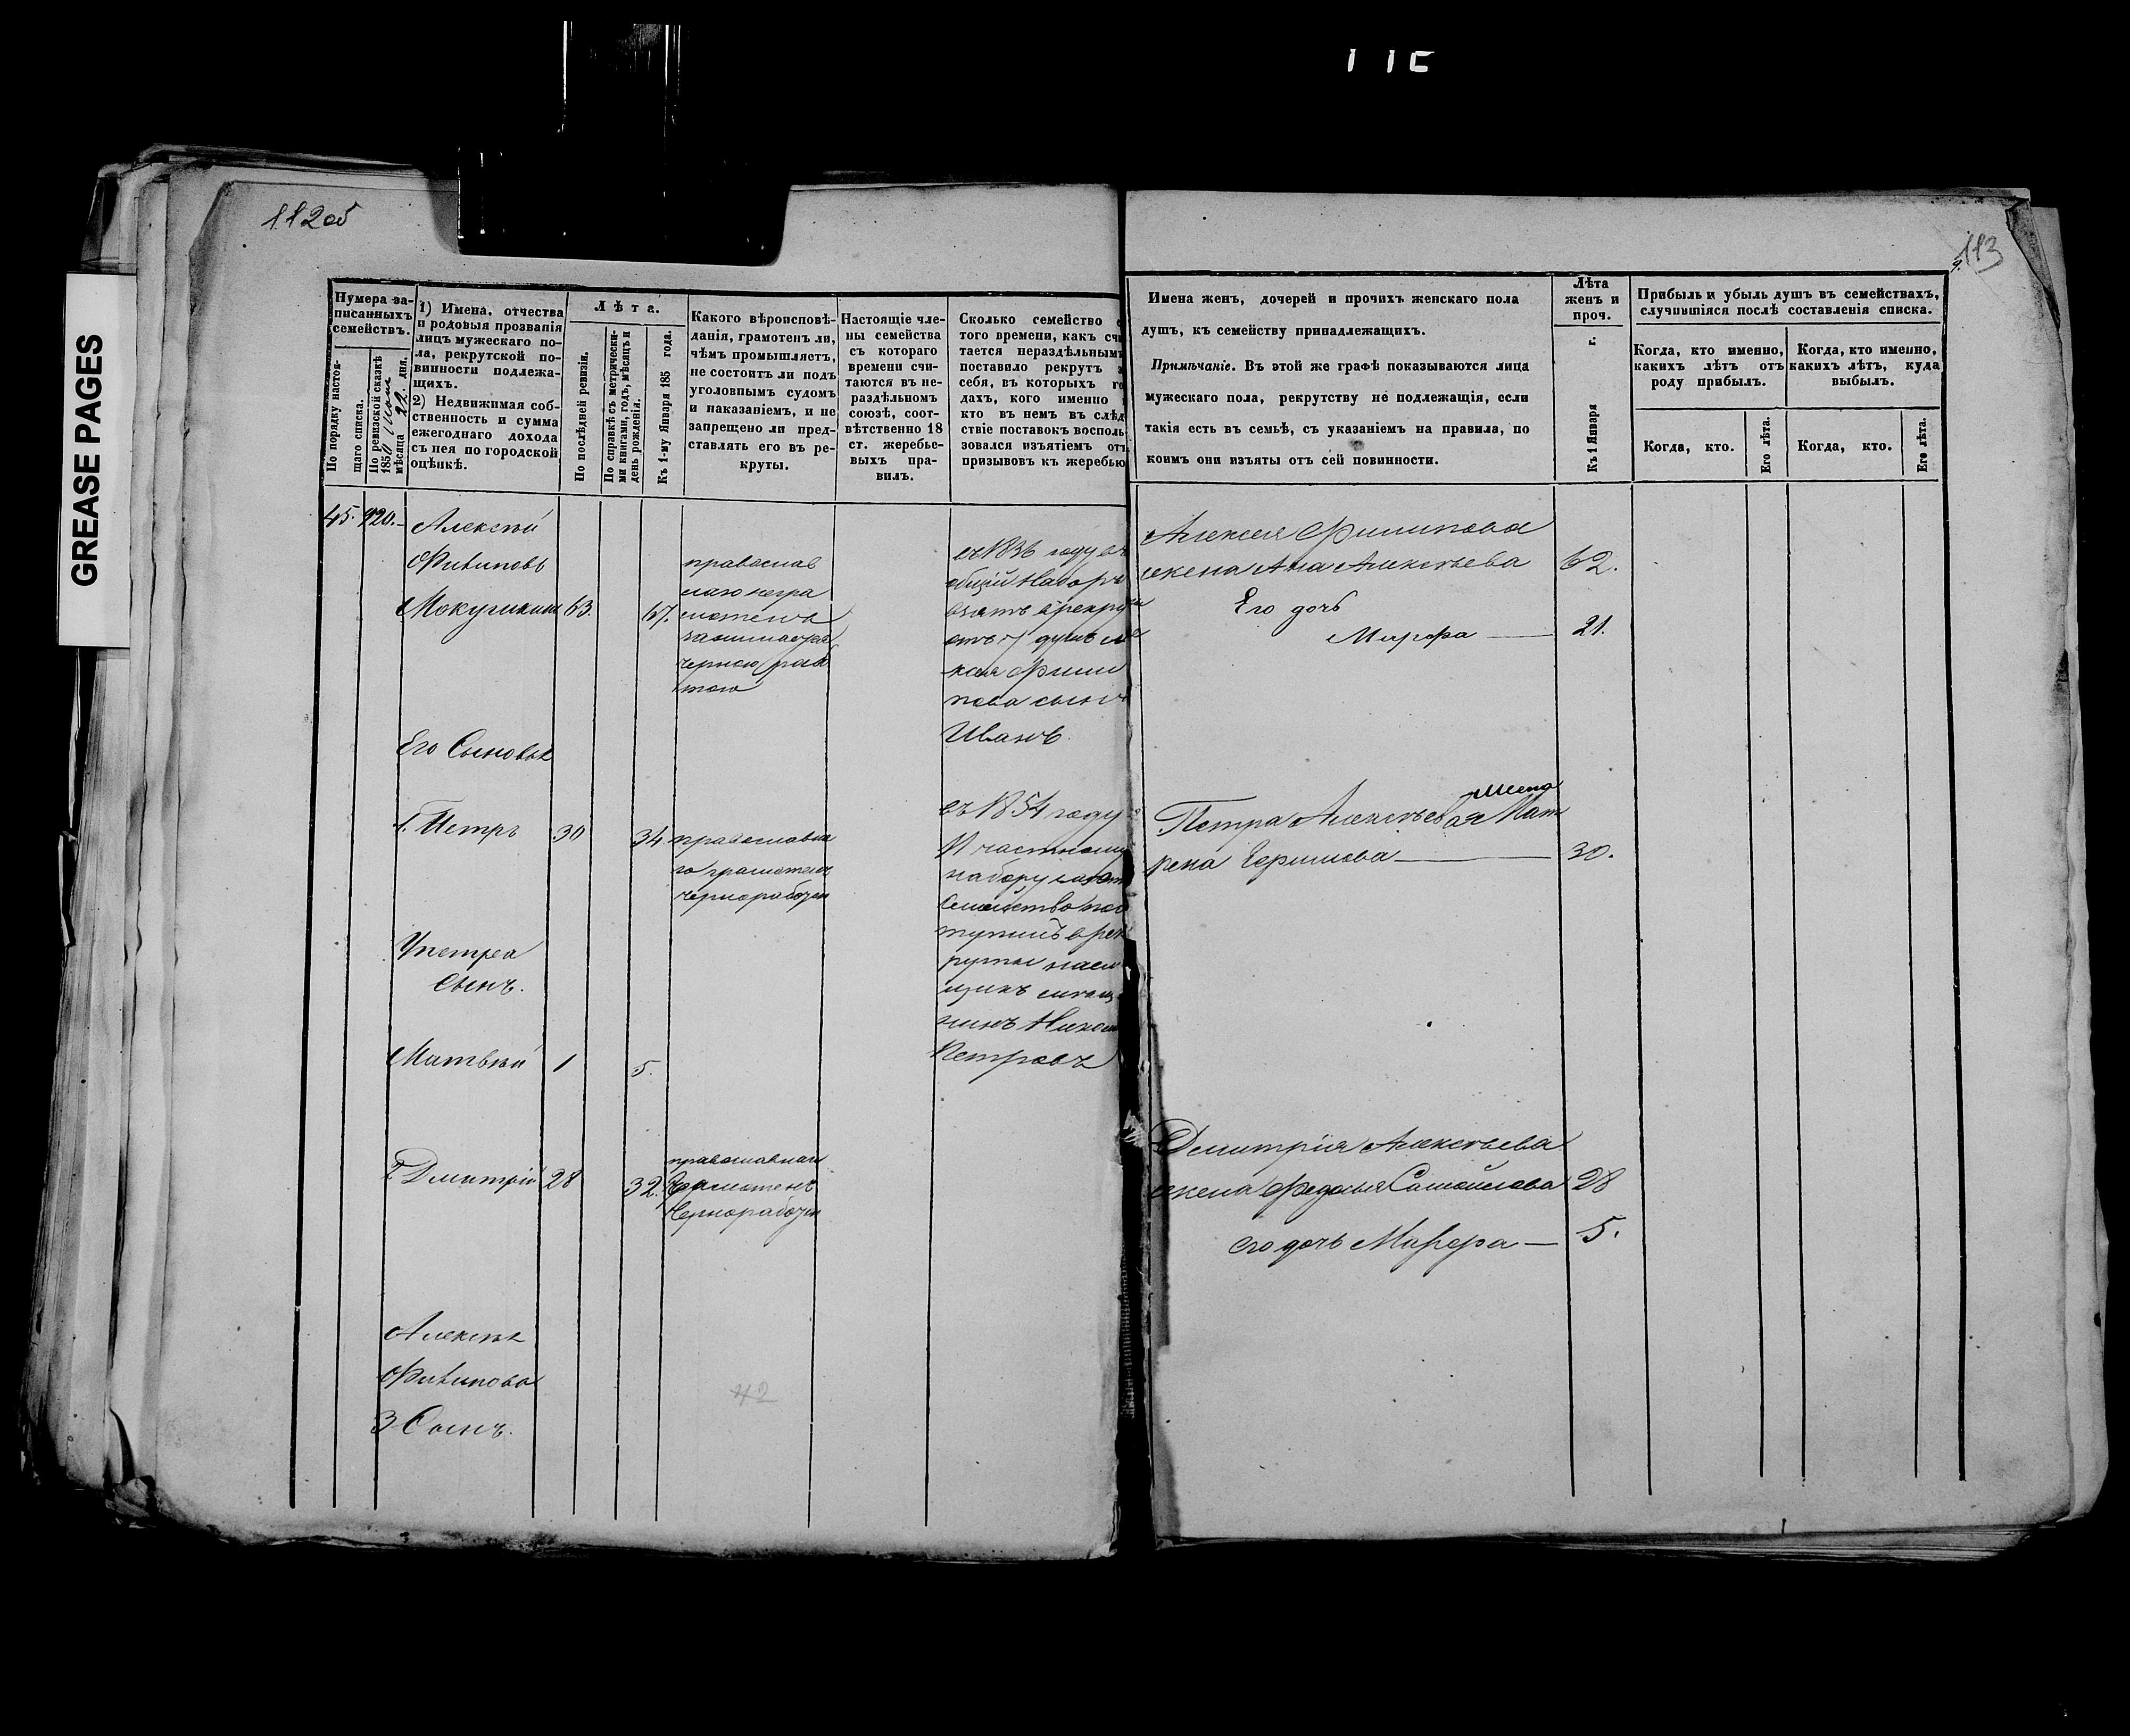 GREASE PAGES
112об
113
Нумера за-
писанныхъ
семействъ.
По порядку настоя-
щаго списка.
По ревизской сказкѣ
1850
мѣсяца 22. дня.
1) Имена, отчества
и родовыя прозванія
лицъ мужескаго по-
ла, рекрутской по-
винности подлежа-
щихъ.
2) Недвижимая соб-
ственность и сумма
ежегоднаго дохода
съ нея по городской
оцѣнкѣ.
Лѣта.
По послѣдней ревизіи.
По справкѣ съ метрически-
ми книгами, годъ, мѣсяцъ и
день рожденія.
Къ 1-му Января 185 года.
Какого вѣроисповѣ-
данія, грамотенъ ли,
чѣмъ промышляетъ,
не состоитъ ли подъ
уголовнымъ судомъ
и наказаніемъ, и не
запрещено ли пред-
ставлять его въ ре-
круты.
Настоящіе чле-
ны семейства
съ котораго
времени счи-
таются въ не-
раздѣльномъ
союзѣ, соот-
вѣтственно 18
ст. жеребье-
выхъ пра-
вилъ.
Сколько семейство с
того времени, какъ счи
тается нераздѣльнымъ
поставило рекрутъ з
себя, въ которыхъ го
дахъ, кого именно
кто въ немъ въ слѣд
ствіе поставокъ восполь
зовался изъятіемъ отъ
призывовъ къ жеребью
45. 920.
Алексѣй
Филиповъ
Мокушкинъ 63. 67.
православ
наго негра
мотенъ
занимается
черною рабо
тою
въ 1836 году въ
общій Наборъ
взятъ в рекруты
отъ 7 душъ Але
ксея Фили
пова сынъ
Иванъ.
Его Сыновья
1. Петръ 30 34.
православна
го грамотенъ
чернорабочи
въ 1854 году
11 частному
набору за это
Семейство пос
тупилъ в рек
руты наем
щикъ мещ
нинъ
Петровъ
У петра
сынъ.
Матвѣй 1 5.
2 Дмитрій 28 32.
православнаго
Грамотенъ
Чернорабочи
Алексѣя
Филипова
3 Сынъ.
42
Имена женъ, дочерей и прочихъ женскаго пола
душъ, къ семейству принадлежащихъ.
Примѣчаніе. Въ этой же графѣ показываются лица
мужескаго пола, рекрутству не подлежащія, если
такія есть въ семьѣ, съ указаніемъ на правила, по
коимъ они изъяты отъ сей повинности.
Лѣта
женъ и
проч.
Къ 1 Января г.
Прибыль и убыль душъ въ семействахъ,
случившіяся послѣ составленія списка.
Когда, кто именно,
какихъ лѣтъ отъ
роду прибылъ.
Когда, кто именно,
какихъ лѣтъ, куда
выбылъ.
Когда, кто.
Его лѣта.
Когда, кто.
Его лѣта.
Алексея Филипова
жена Ана Алексѣева 62.
Его дочь
Марфа 21.
жена
Петра Алексѣева Мат
рена Ефимова 30.
Демитрія Алексѣева
жена Федосья Самойлова 28
его дочь Марфа 5.